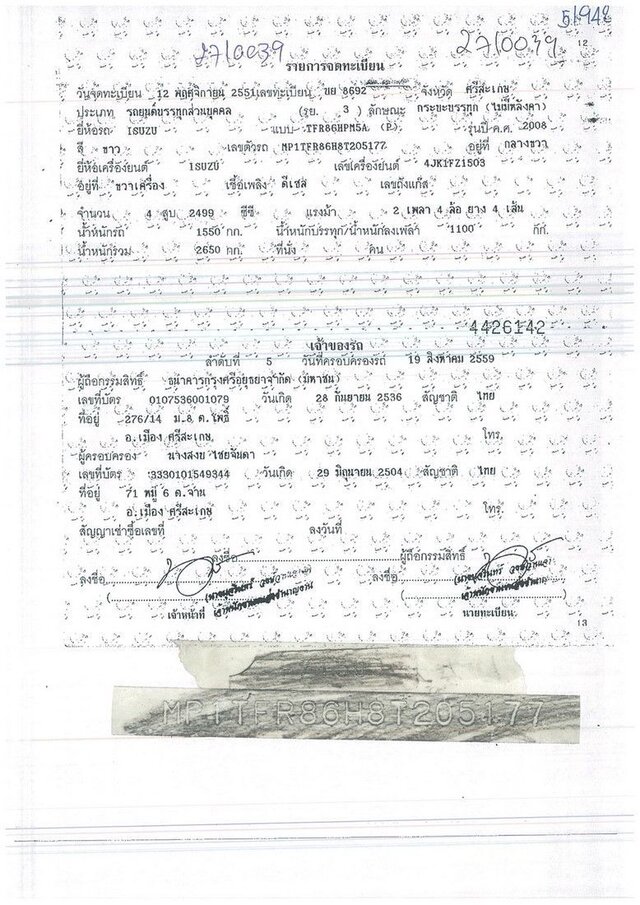 51948
27/0039 27/0039
12
รายการจดทะเบียน
วันจดทะเบียน 12 พฤศจิกายน 2551 เลขทะเบียน บย 8692 จังหวัด ศรีสะเกษ
ประเภท รถยนต์บรรทุกส่วนบุคคล (รย. 3 ) ลักษณะ กระบะบรรทุก (ไม่มีหลังคา)
ยี่ห้อรถ ISUZU แบบ TFR86HPM5A (P) รุ่นปี ค.ศ. 2008
สี ขาว เลขตัวรถ MP1TFR86H8T205177 อยู่ที่ กลางขวา
ยี่ห้อเครื่องยนต์ ISUZU เลขเครื่องยนต์ 4JK1FZ1503
อยู่ที่ ขวาเครื่อง เชื้อเพลิง ดีเซล เลขถังแก๊ส
จำนวน 4 สูบ 2499 ซีซี แรงม้า 2 เพลา 4 ล้อ ยาง 4 เส้น
น้ำหนักรถ 1550 กก. น้ำหนักบรรทุก/น้ำหนักลงเพลา 1100 กก.
น้ำหนักรวม 2650 กก. ที่นั่ง คน
4426142
เจ้าของรถ
ลำดับที่ 5 วันที่ครอบครองรถ 19 สิงหาคม 2559
ผู้ถือกรรมสิทธิ์ ธนาคารกรุงศรีอยุธยาจำกัด (มหาชน)
เลขที่บัตร 0107536001079 วันเกิด 28 กันยายน 2536 สัญชาติ ไทย
ที่อยู่ 276/14 ม.8 ต.โพธิ์
อ.เมือง ศรีสะเกษ โทร.
ผู้ครอบครอง นางสงบ ไชยจันดา
เลขที่บัตร 3330101549344 วันเกิด 29 มิถุนายน 2504 สัญชาติ ไทย
ที่อยู่ 71 หมู่ 6 ต.จาน
อ.เมือง ศรีสะเกษ โทร.
สัญญาเช่าซื้อเลขที่ ลงวันที่
ลงชื่อ ผู้ถือกรรมสิทธิ์
ลงชื่อ ลงชื่อ
เจ้าหน้าที่ นายทะเบียน
13
MP1TFR86H8T205177